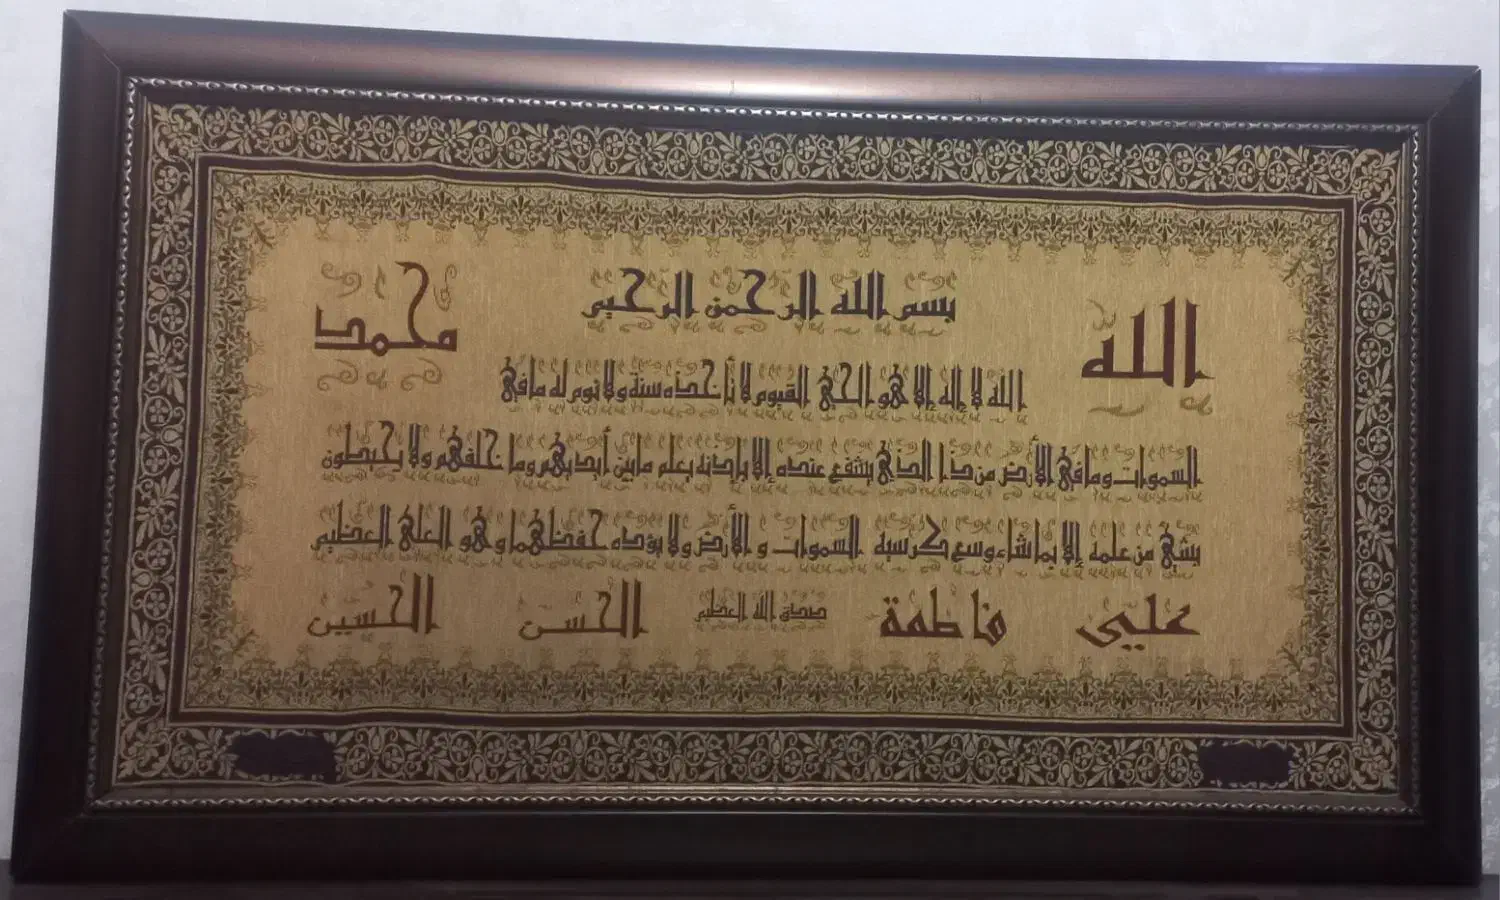 الله
بسم الله الرحمن الرحيم
محمد
الله لا إله إلا هو الحي القيوم لا تأخذه سنة ولا نوم له ما في
السموات وما في الأرض من ذا الذي يشفع عنده إلا بإذنه يعلم ما بين أيديهم وما خلفهم ولا يحيطون
بشيء من علمه إلا بما شاء وسع كرسيه السموات و الأرض ولا يؤده حفظهما وهو العلي العظيم
علي فاطمة صدق الله العظيم الحسن الحسين